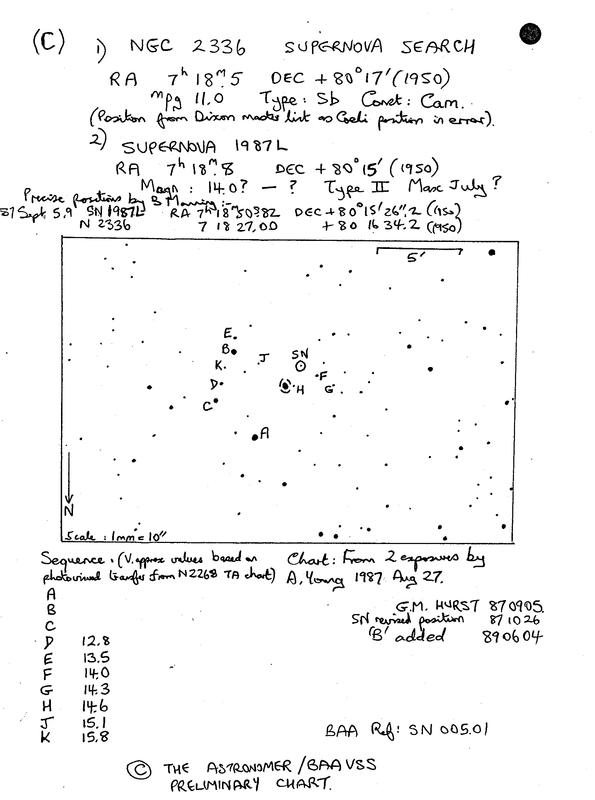 (C) 1) NGC 2336 SUPERNOVA SEARCH
RA 7h 18m.5 DEC +80°17' (1950)
mpg 11.0 Type: Sb Const: Cam.
(Position from Dixon master list as Coeli position in error).
2) SUPERNOVA 1987L
RA 7h 18m.8 DEC +80°15' (1950)
Magn: 14.0? — ? Type II Max July ?
Precise positions by B Manning :-
87 Sept 5.9 SN 1987L RA 7h 18m 50s.82 DEC +80°15'26".2 (1950)
N 2336 7 18 27.00 +80 16 34.2 (1950)
5'
E
B
J
SN
K
F
D
H
G
C
A
N
Scale: 1mm = 10"
Sequence: (V. approx values based on
photovisual transfer from N2268 TA chart)
Chart: From 2 exposures by
A. Young 1987 Aug 27.
A
B
C
D 12.8
E 13.5
F 14.0
G 14.3
H 14.6
J 15.1
K 15.8
G.M. HURST 870905.
SN revised position 871026
'B' added 890604
BAA Ref: SN 005.01
© THE ASTRONOMER / BAA VSS
PRELIMINARY CHART.